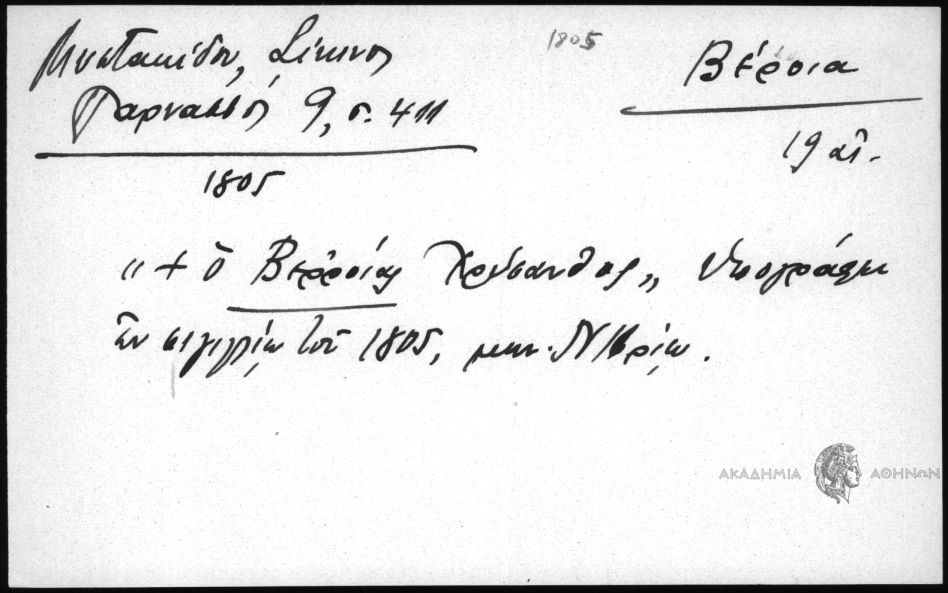 Μυστακίδου, Σίκινος
Παρνασσός 9, σ. 411
1805
1805
Βέροια
19 αἰ.
„ + ὁ Βερροίας Χρύσανθος „ ὑπογράφει
ἐν σιγιλλίῳ τοῦ 1805, μην. Ν/βρίῳ.
ΑΚΑΔΗΜΙΑ ΑΘΗΝΩΝ